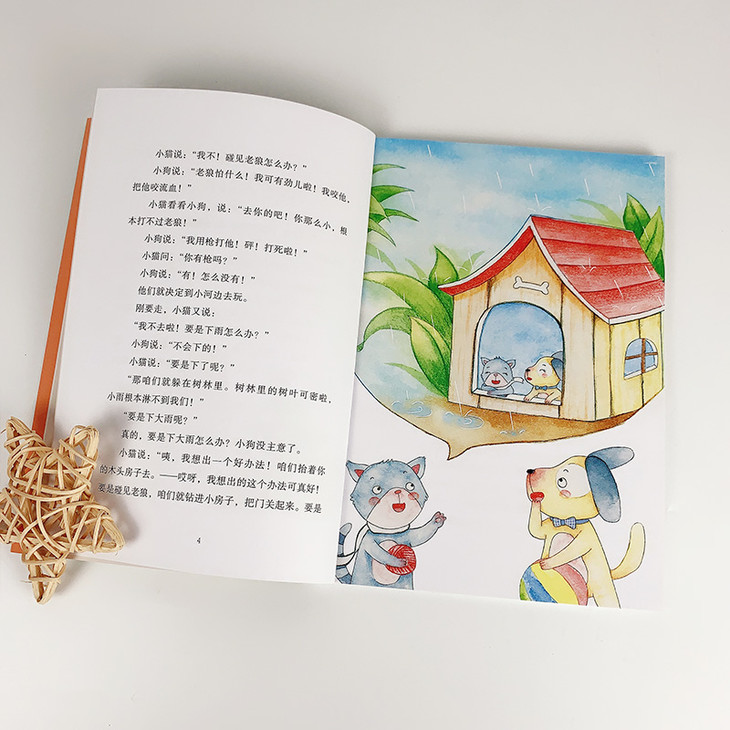 小猫说：“我不！碰见老狼怎么办？”
小狗说：“老狼怕什么！我可有劲儿啦！我咬他，
把他咬流血！”
小猫看看小狗，说：“去你的吧！你那么小，根
本打不过老狼！”
小狗说：“我用枪打他！砰！打死啦！”
小猫问：“你有枪吗？”
小狗说：“有！怎么没有！”
他们就决定到小河边去玩。
刚要走，小猫又说：
“我不去啦！要是下雨怎么办？”
小狗说：“不会下的！”
小猫说：“要是下了呢？”
“那咱们就躲在树林里。树林里的树叶可密啦，
小雨根本淋不到我们！”
“要是下大雨呢？”
真的，要是下大雨怎么办？小狗没主意了。
小猫说：“咦，我想出一个好办法！咱们抬着你
的木头房子去。——哎呀，我想出的这个办法可真好！
要是碰见老狼，咱们就钻进小房子，把门关起来。要是
4